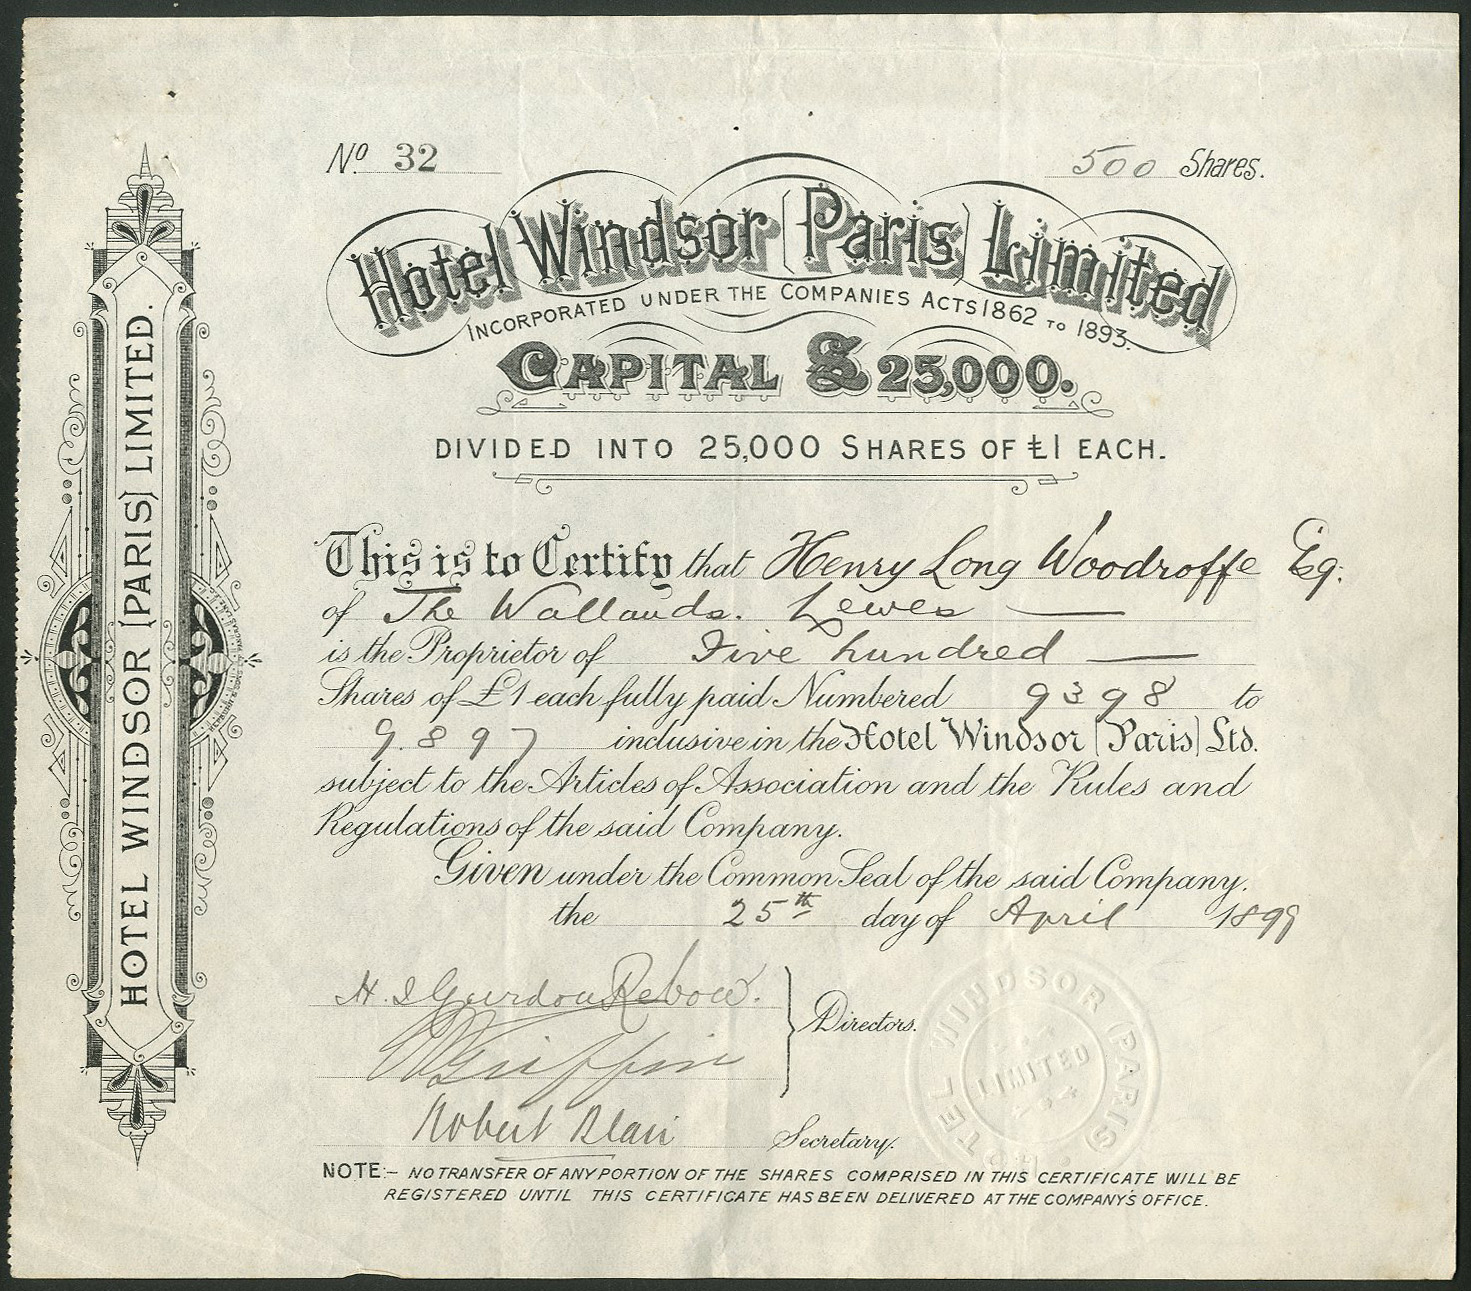 No. 32
500 Shares.
Hotel Windsor (Paris) Limited
INCORPORATED UNDER THE COMPANIES ACTS 1862 TO 1893.
CAPITAL £25,000.
DIVIDED INTO 25,000 SHARES OF £1 EACH.
This is to Certify that Henry Long Woodroffe Esq:
of The Wallands. Lewes
is the Proprietor of Five hundred
Shares of £1 each fully paid Numbered 9398 to
9897 inclusive in the Hotel Windsor (Paris) Ltd.
subject to the Articles of Association and the Rules and
Regulations of the said Company.
Given under the Common Seal of the said Company.
the 25th day of April 1899
H. I Gurdon Rebow.
Griffin
Directors.
Robert Blair
Secretary.
NOTE:- NO TRANSFER OF ANY PORTION OF THE SHARES COMPRISED IN THIS CERTIFICATE WILL BE
REGISTERED UNTIL THIS CERTIFICATE HAS BEEN DELIVERED AT THE COMPANY'S OFFICE.
HOTEL WINDSOR (PARIS) LIMITED.
HOTEL WINDSOR (PARIS)
LIMITED